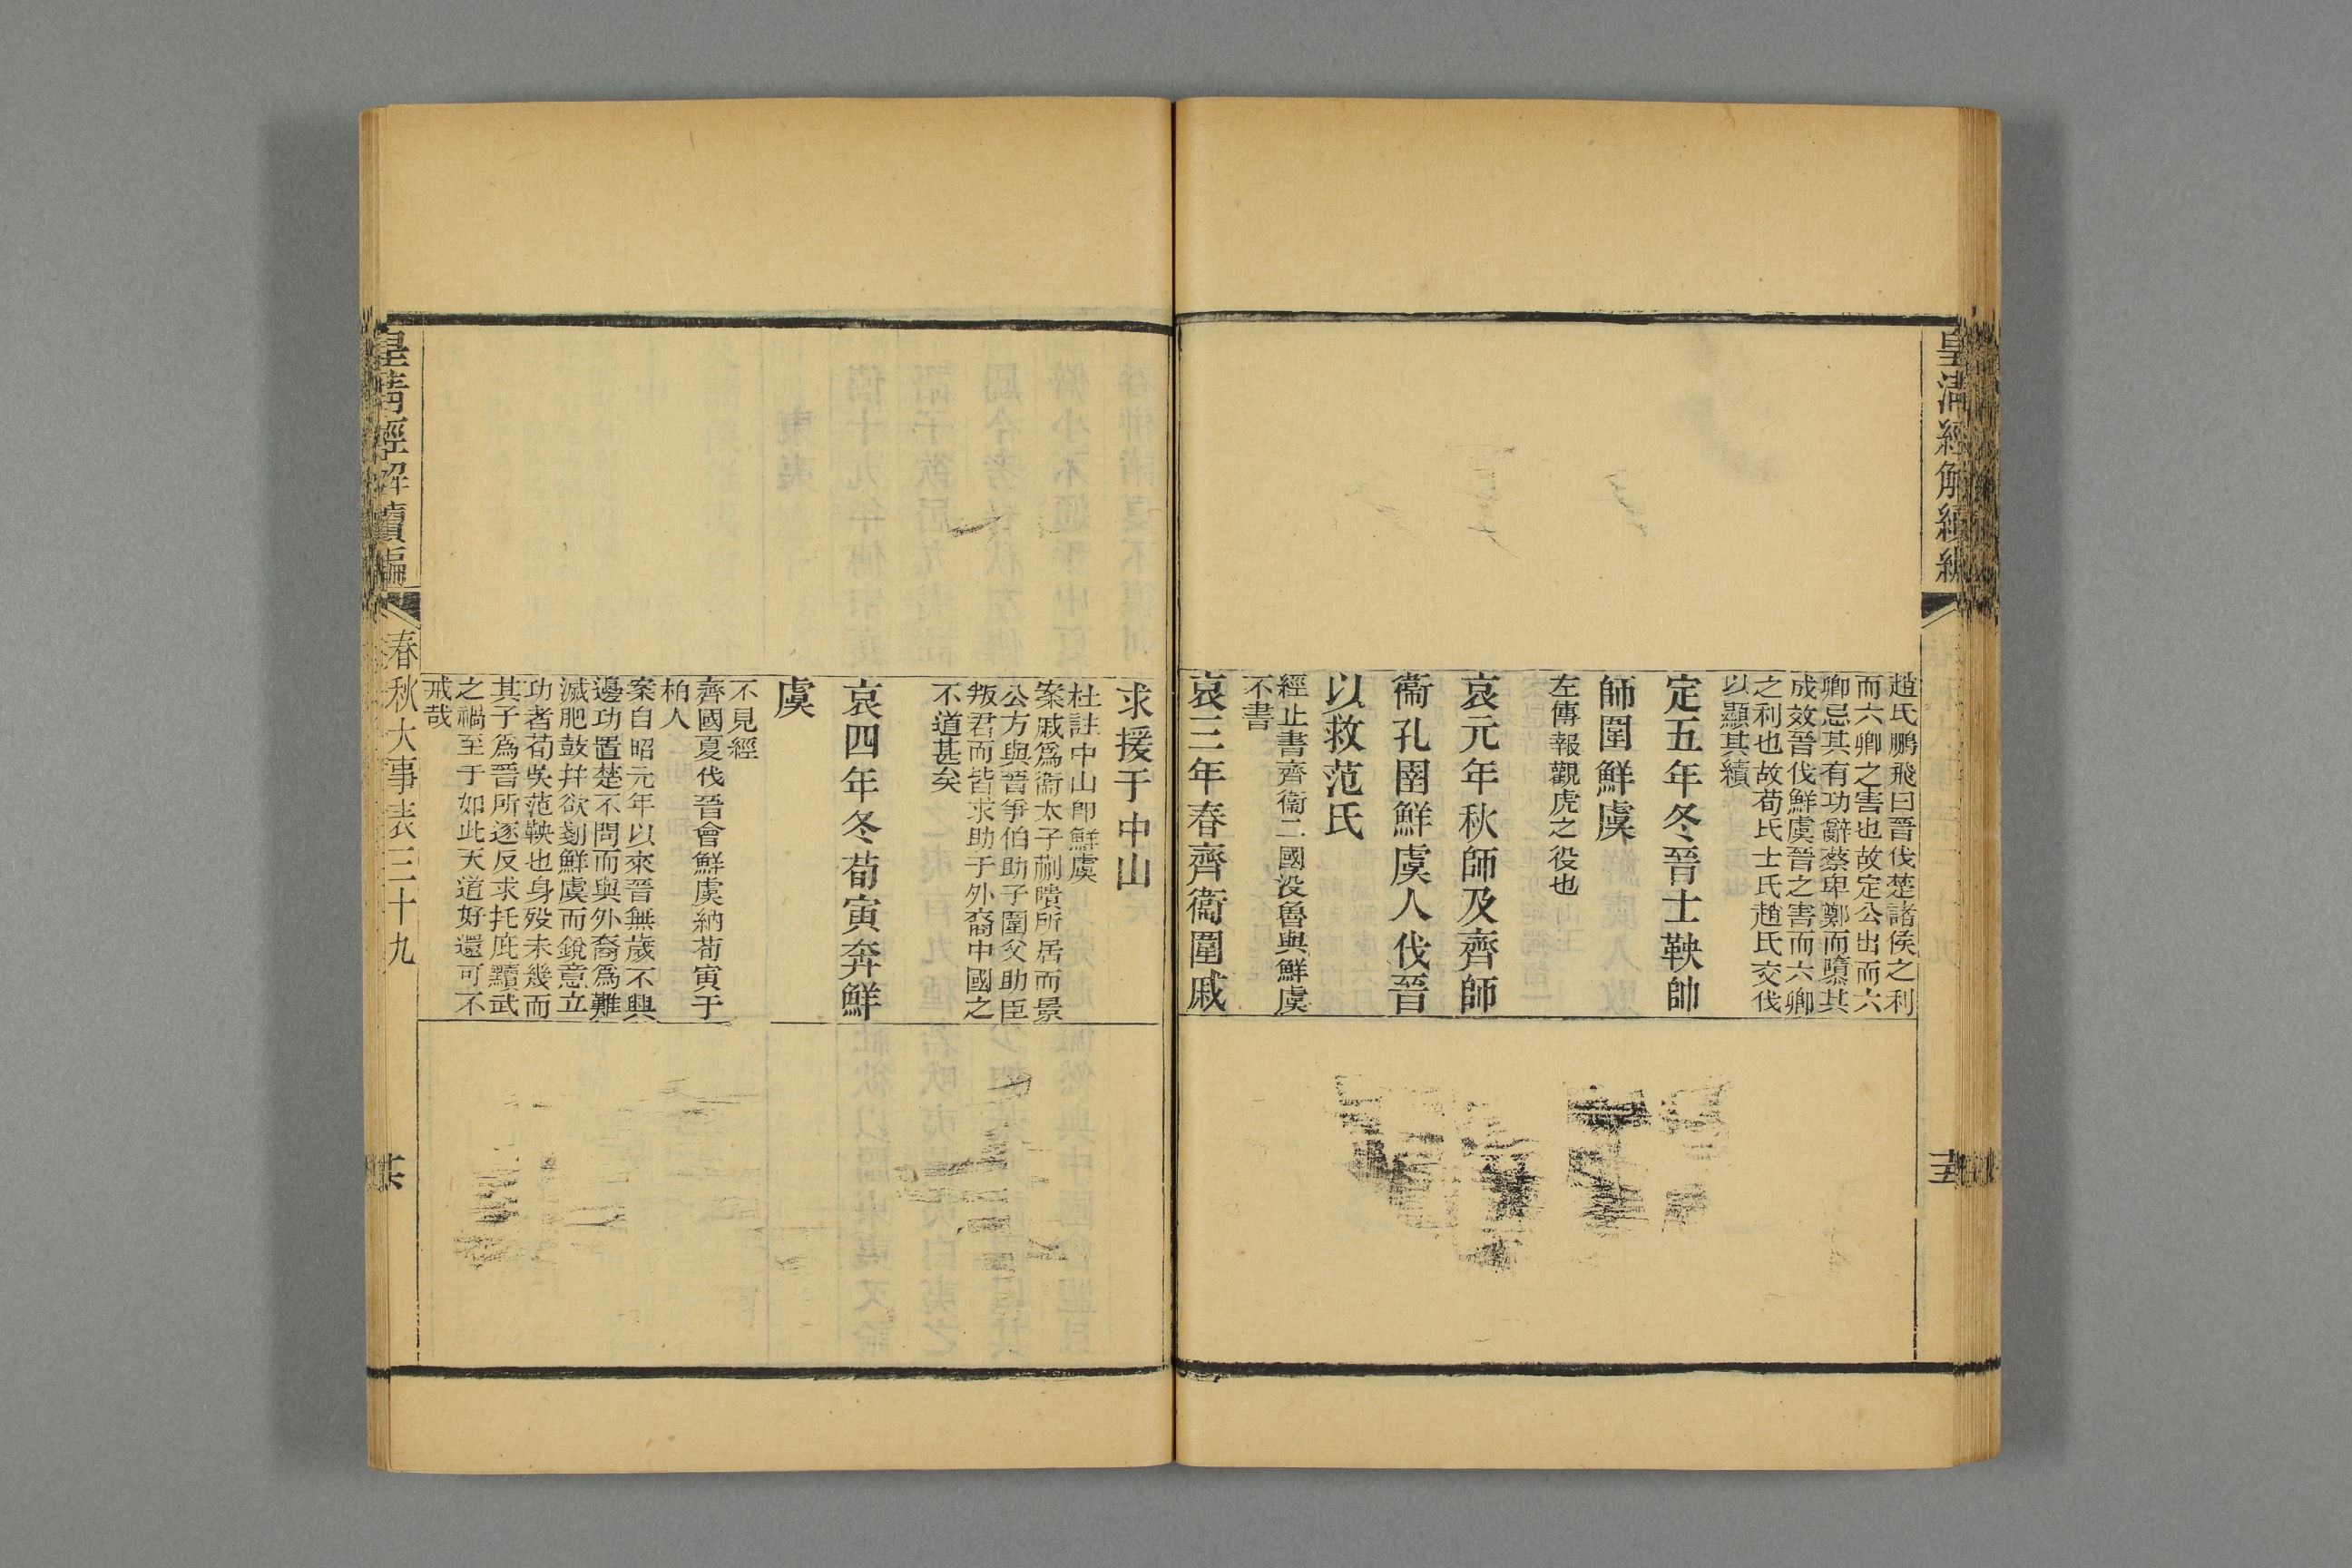 皇清經解續編
趙氏鵬飛曰晉伐楚諸侯之利
而六卿之害也故定公出而六
卿忌其有功辭蔡卑鄭而隳其
成效晉伐鮮虞晉之害而六卿
之利也故荀氏士氏趙氏交伐
以顯其績
定五年冬晉士鞅帥
師圍鮮虞
左傳報觀虎之役也
哀元年秋師及齊師
衞孔圉鮮虞人伐晉
以救范氏
經止書齊衞二國没魯與鮮虞
不書
哀三年春齊衞圍戚
求援于中山
杜註中山卽鮮虞
案戚爲衞太子蒯聵所居而景
公方與晉爭伯助子圍父助臣
叛君而皆求助于外裔中國之
不道甚矣
哀四年冬荀寅奔鮮
虞
不見經
齊國夏伐晉會鮮虞納荀寅于
柏人
案自昭元年以來晉無歲不興
邊功置楚不問而與外裔爲難
滅肥鼓幷欲剗鮮虞而銳意立
功者荀吳范鞅也身歿未幾而
其子爲晉所逐反求托庇黷武
之禍至于如此天道好還可不
戒哉
皇清經解續編
春秋大事表三十九